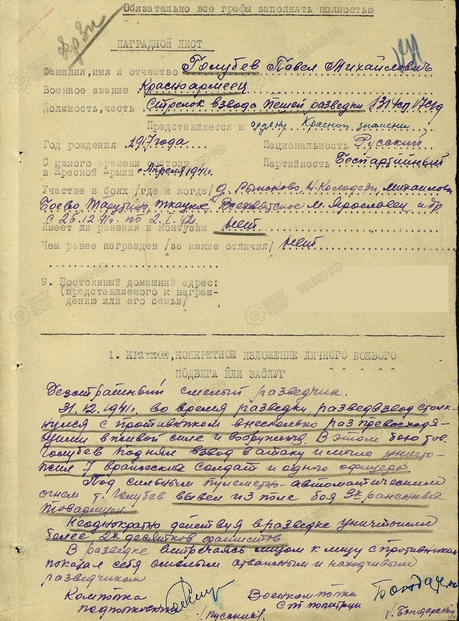 Обязательно все графы заполнять полностью
НАГРАДНОЙ ЛИСТ
Фамилия, имя и отчество Голубев Павел Михайлович
Военное звание Красноармеец
Должность, часть Стрелок взвода пешей разведки
Представляется к ордену Красное знамени
Год рождения 1917 года Национальность Русский
С какого времени состоит
в Красной Армии Апрель 1941г. Партийность Беспартийный
Участие в боях /где и когда/ д.
М. Ярославец и др.
с 26.12.41г. по 2.1.42.
Имеет ли ранения и контузии нет
Чем ранее награжден /за какие отличия/ нет
9. Постоянный домашний адрес:
/представляемого к награж-
дению или его семьи/
1. КРАТКОЕ, КОНКРЕТНОЕ ИЗЛОЖЕНИЕ ЛИЧНОГО БОЕВОГО
ПОДВИГА ИЛИ ЗАСЛУГ
Бесстрашный смелый разведчик.
31.12.1941г. во время разведки, разведвзвод столк-
нулся с противником в несколько раз превосходя-
щими в живой силе и вооружении. В этом бою тов.
Голубев поднял взвод в атаку и лично уничто-
жил 7 вражеских солдат и одного офицера
Под сильным пулеметно-автоматическим
огнем т. Голубев вывел из поле боя 3х раненных
товарищей
Неоднократно действуя в разведке уничтожил
более 2х десятков фашистов
В разведке встречаясь лицом к лицу с противником
показал себя смелым отважным и находчивым
разведчиком
Ком. полка Военком полка
подполковник Ст. политрук